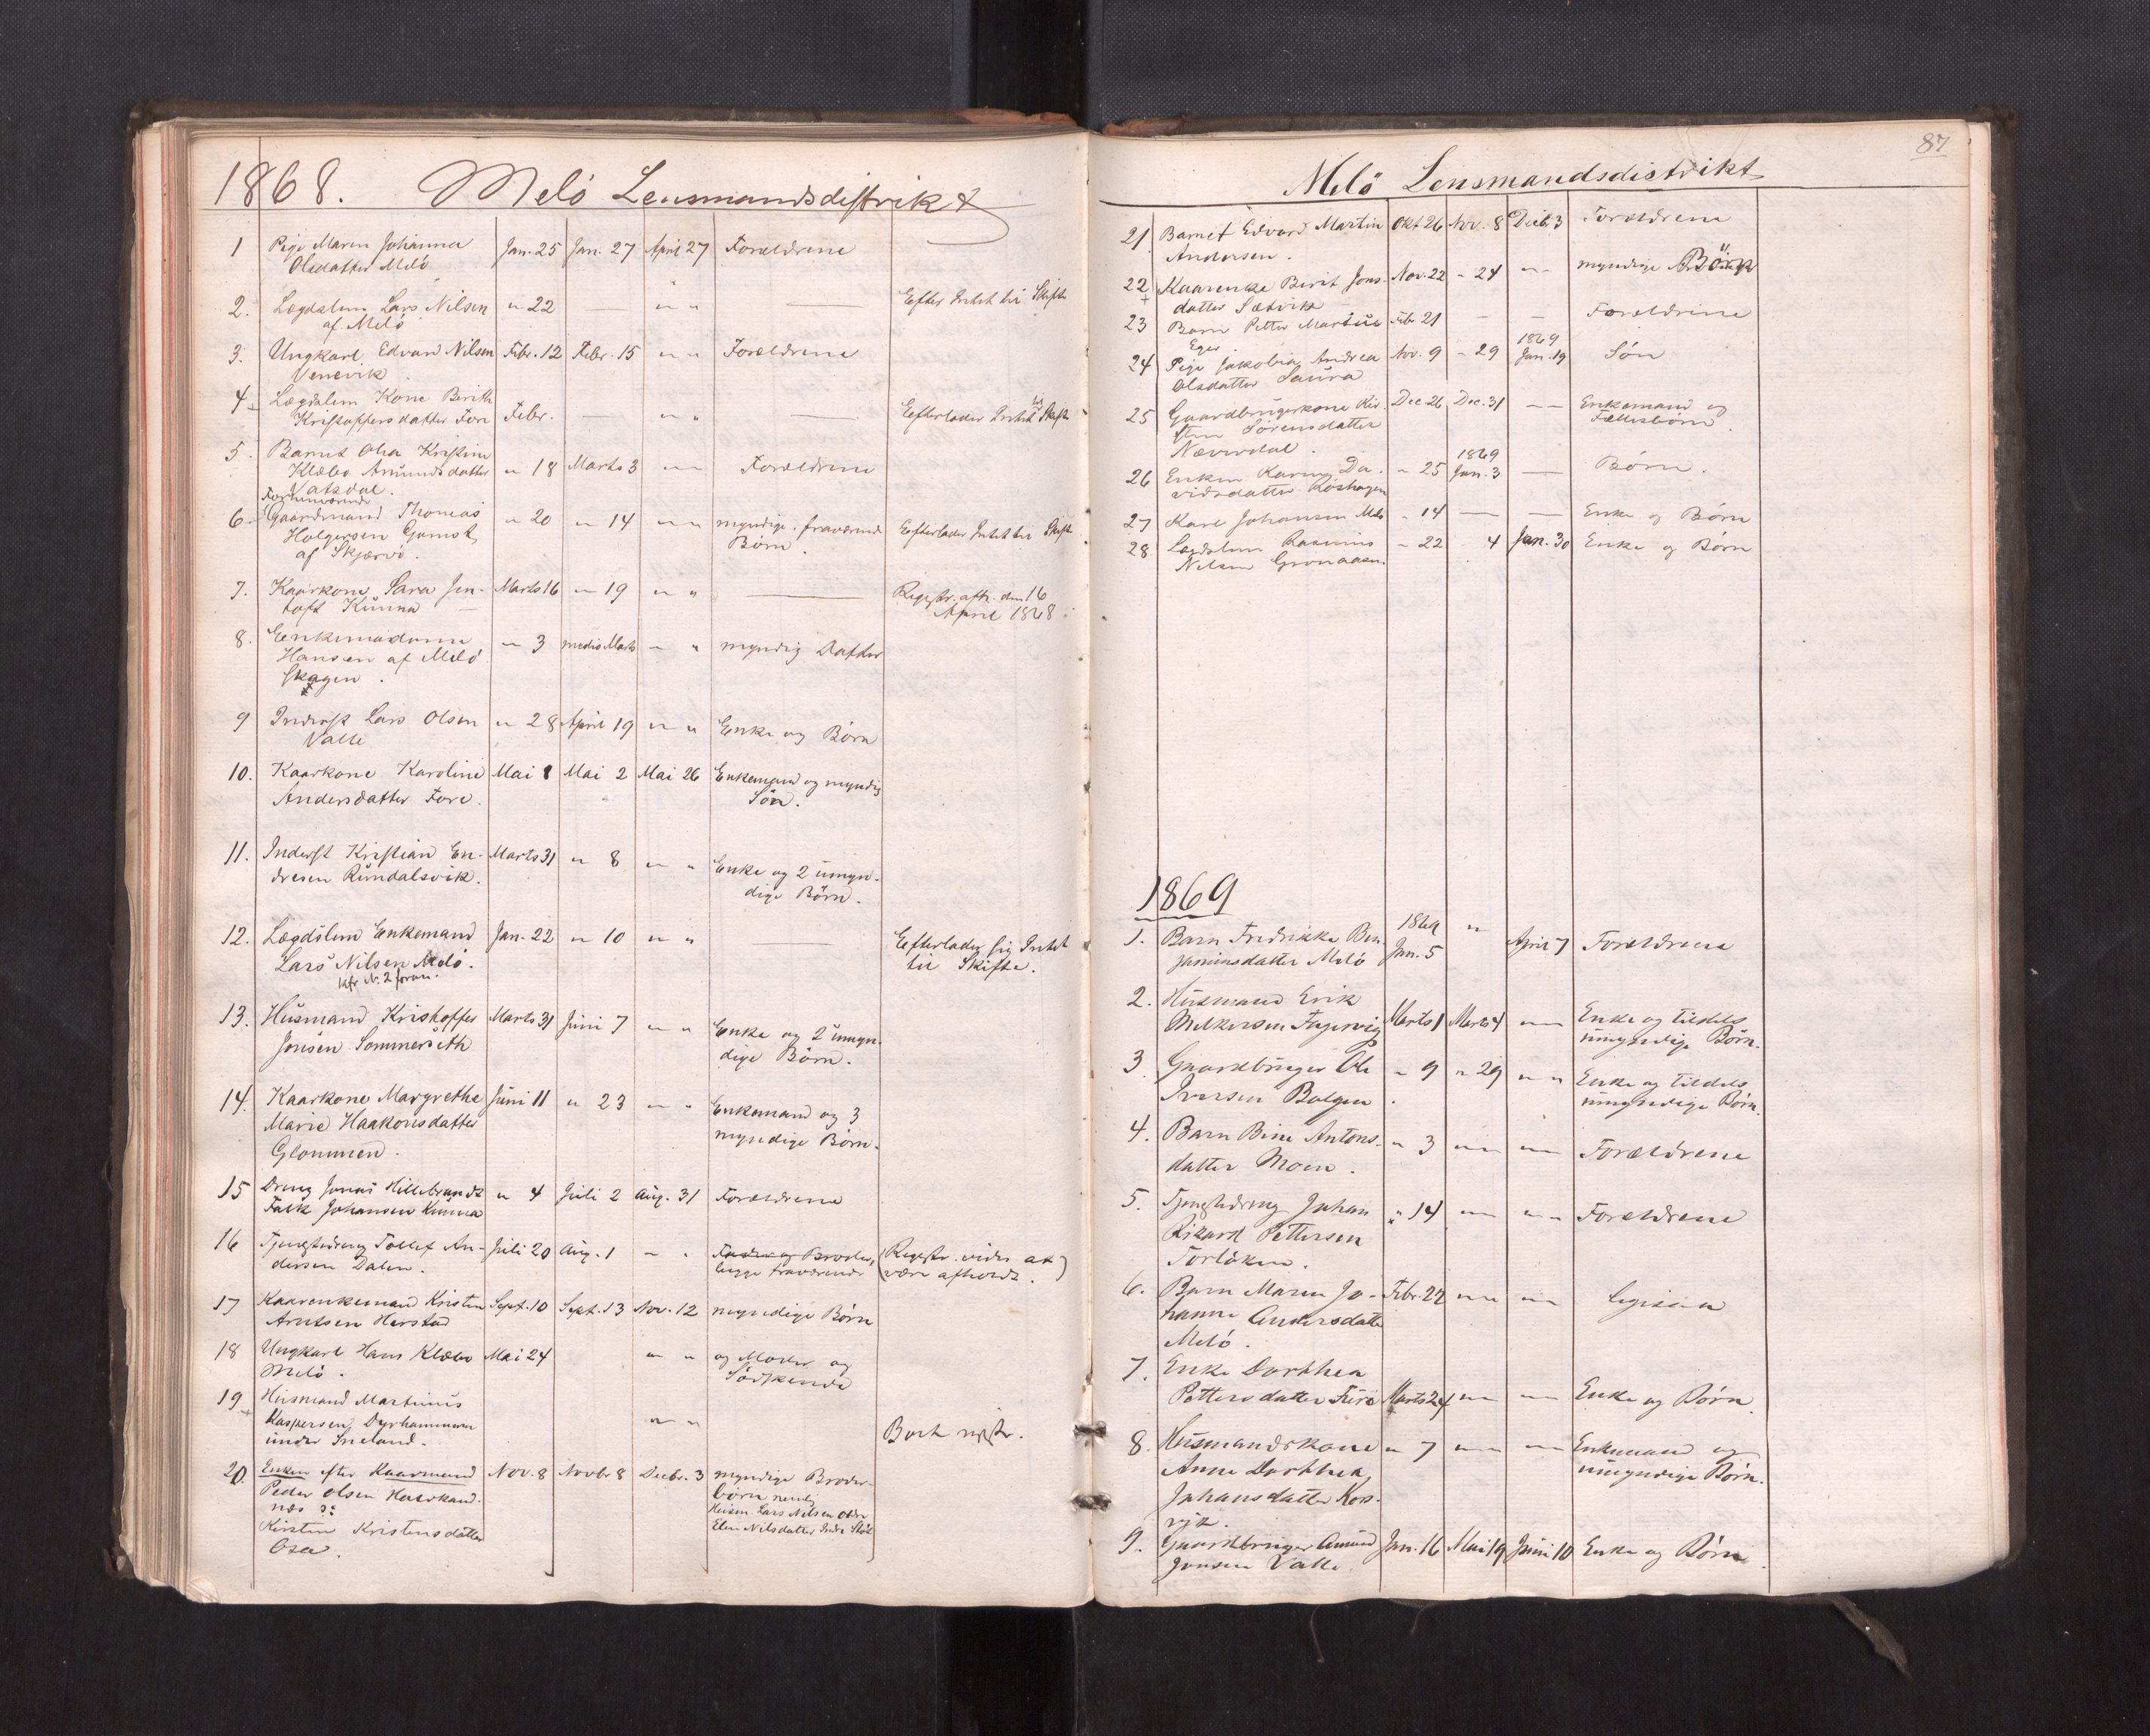 1868. Melö Lensmandsdistrikt
1 Pige Maren Johanna Jan. 25 Jan. 27 April 27 Forældrene
Olsdatter Melö
2. Lægdslem Lars Nilsen " 22 — " " — Efter Intet til Skifte
af Melö
3. Ungkarl Edvard Nilsen Febr. 12 Febr. 15 " " Forældrene
Venevik
4 Lægdslem Kone Berith Febr. — " " — Efterlader Intet til Skifte
Kristoffersdatter Fore
5. Barnet Olea Kristine
Klæbo Amundsdatter " 18 Marts 3 " " Forældrene
Vatsdal.
Forhenværende
6. Gaardmand Thomas " 20 " 14 " " myndige fraværende Efterlader Intet til Skifte
Holgersen Børn.
af Skjærvö.
7. Kaarkone Sara Jen- Marts 16 " 19 " " — Registr. afh. den 16
toft Kunna April 1868.
8. Enkemadame " 3 medio Marts " " myndig Datter
Hansen af Melö
Skagen.
9 Inderst Lars Olsen " 28 April 19 " " Enke og Börn
Valle
10. Kaarkone Karoline Mai 1 Mai 2 Mai 26 Enkemand og myndig
Andersdatter Fore. Sön.
11. Inderst Kristian En- Marts 31 " 8 " " Enke og 2 umyn-
dresen Rundalsvik. dige Börn.
12. Lægdslem Enkemand Jan. 22 " 10 " " — Efterlader sig Intet
Lars Nilsen Melö. til Skifte.
kfr N. 2 foran.
13. Husmand Kristoffer Marts 31 Juni 7 " " Enke og 2 umyn-
Jensen Sommerseth dige Börn.
14. Kaarkone Margrethe Juni 11 " 23 " " Enkemand og 3
Marie Haakonsdatter myndige Börn.
Glommen.
15 Dreng Jonas Hillebrandt " 4 Juli 2 Aug. 31 Forældrene
Falk Johansen Kunna
16 Tjenestedreng Tollef An- Juli 20 Aug. 1 " " Fader og Broder, (Registr. vides at)
dersen Dalen. begge fraværende (være afholdt.)
17 Kaarenkemand Kristen Sept. 10 Sept. 13 Nov. 12 myndige Börn
Arntsen Horstad
18 Ungkarl Hans Klæbo Mai 24 " " og Moder og
Melö. Södskende
19 Husmand Martinus
Kaspersen " "
under Sneland. Bort registr.
20. Enken efter Kaarmand Nov. 8 Novbr 8 Decbr. 3 myndige Broder-
Peder Olsen börn nemlig
næs ɔ: Lars Nilsen
Kirsten Kristensdatter Elen Nilsdatter Indre
Osa.
87
Melö Lensmandsdistrikt
21 Barnet Edvard Martin Okt 26 Nov. 8 Decbr. 3 Forældrene
Andersen.
22 Kaarenke Berit Jons- Nov. 22 " 24 " " myndige Börn
datter Sætvik
23 Barn Petter Martin Febr 21 — — Forældrene
1869
24 Pige Jakobia Andrea Nov. 9 " 29 Jan. 19 Sön
Olsdatter Saura
25 Gaardbrugerkone Kir- Dec 26 Dec. 31 " " Enkemand og
sten Sörensdatter Fællesbörn.
Næverdal.
1869
26 Enken Karen Da- " 25 Jan. 3 — Börn.
vidsdatter
27 Karl Johansen Melö " 14 — — Enke og Börn
28 Lægdslem Rasmus " 22 4 Jan. 30 Enke og Börn
Nilsen Gronaasen.
1869
1. Barn Fredrikke Ben- 1869 Jan. 5 " April 7 Forældrene
jaminsdatter Melö
2. Husmand Erik Marts 1 Marts 4 " " Enke og tildels
Melkersen Fagervig umyndige Börn.
3 Gaardbruger Ole " 9 " 29 " " Enke og tildels
Iversen Bolgen umyndige Börn.
4. Barn Bine Antons- " 3 " " " " Forældrene
datter Moen.
5. Tjenstedreng Johan " 14 " " " " Forældrene
Rikard Pettersen
Torlöken.
6. Barn Maren Jo- Febr. 22 " " " "
hanne Andersdatter
Melö.
7. Enke Dorthea
Pettersdatter Furö Marts 24 " " " " Enke og Börn.
8. Husmandskone " 7 " " " " Enkemand og
Anne Dorthea umyndige Börn.
Johansdatter Kors-
vik.
9. Gaardbruger Amund Jan. 16 Mai 19 Juni 10 Enke og Börn.
Jonsen Valle